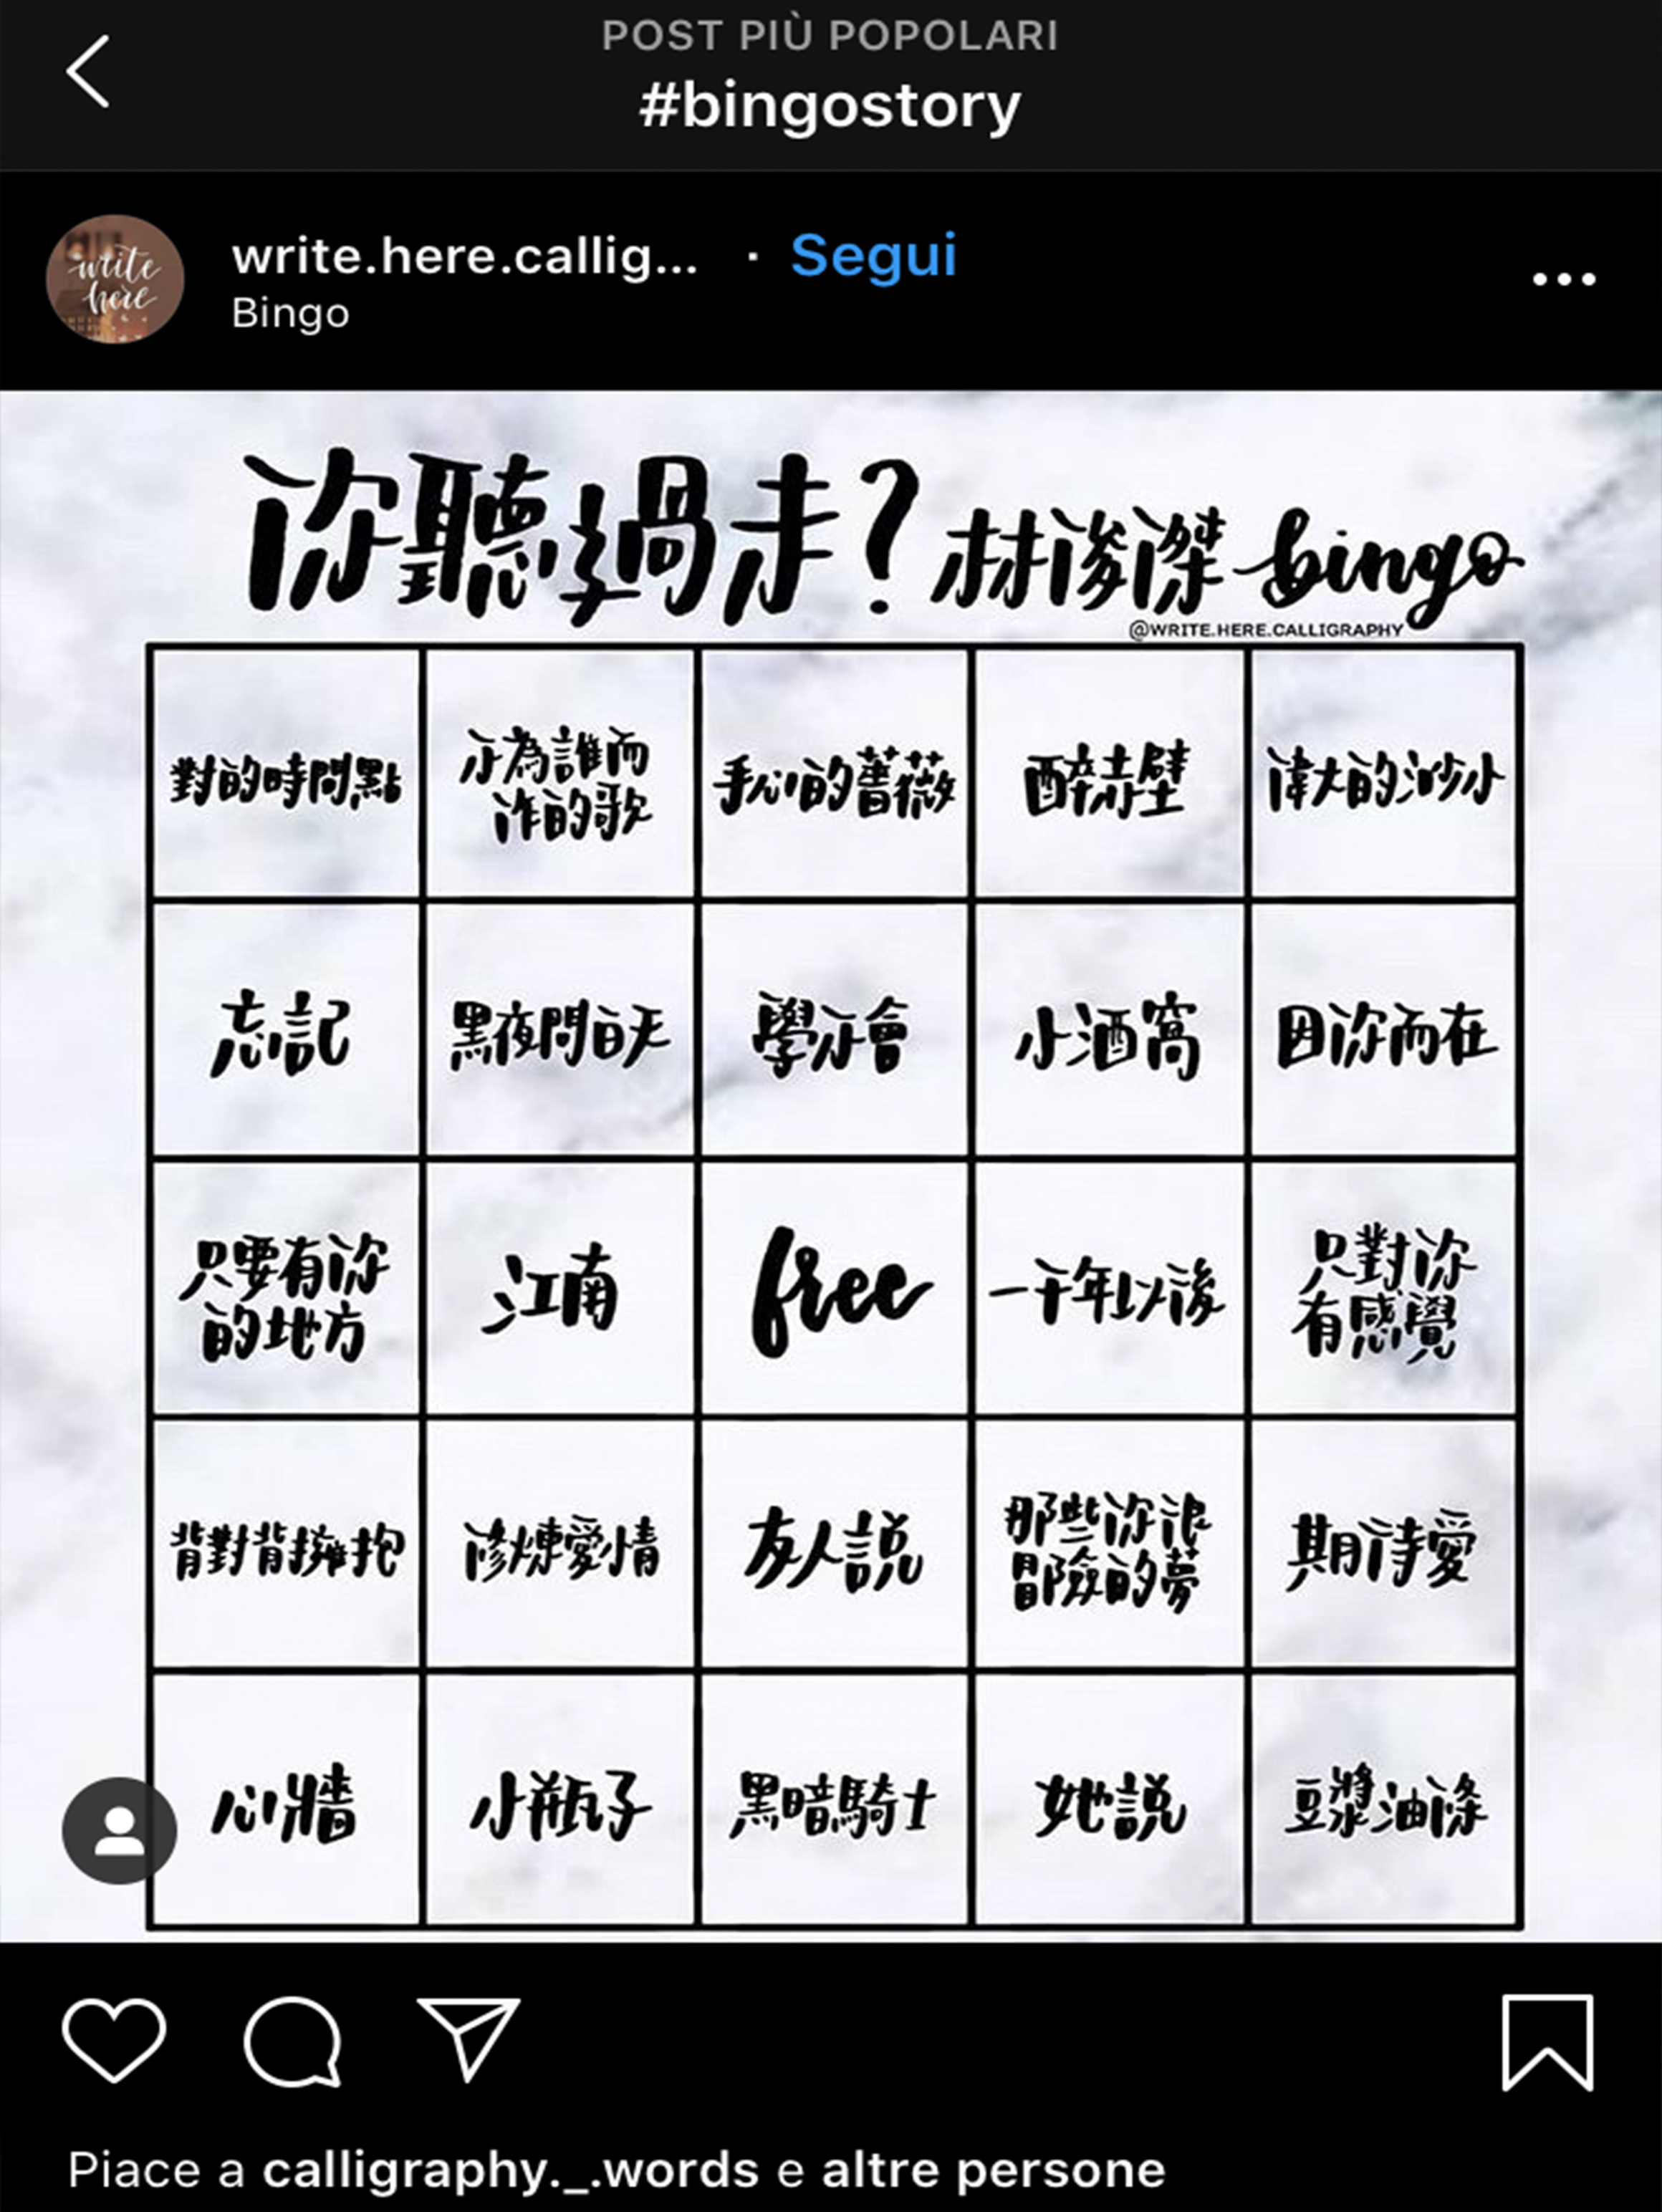 POST PIÙ POPOLARI
#bingostory
write.here.callig... · Segui
Bingo
write
here
你聽過未? 林俊傑 bingo
@WRITE.HERE.CALLIGRAPHY
對的時間點
不為誰而
作的歌
手心的薔薇
醉赤壁
偉大的渺小
忘記
黑夜問白天
學不會
小酒窩
因你而在
只要有你
的地方
江南
free
一千年以後
只對你
有感覺
背對背擁抱
修煉愛情
友人說
那些你很
冒險的夢
期待愛
心牆
小瓶子
黑暗騎士
她說
豆漿油條
Piace a calligraphy._.words e altre persone